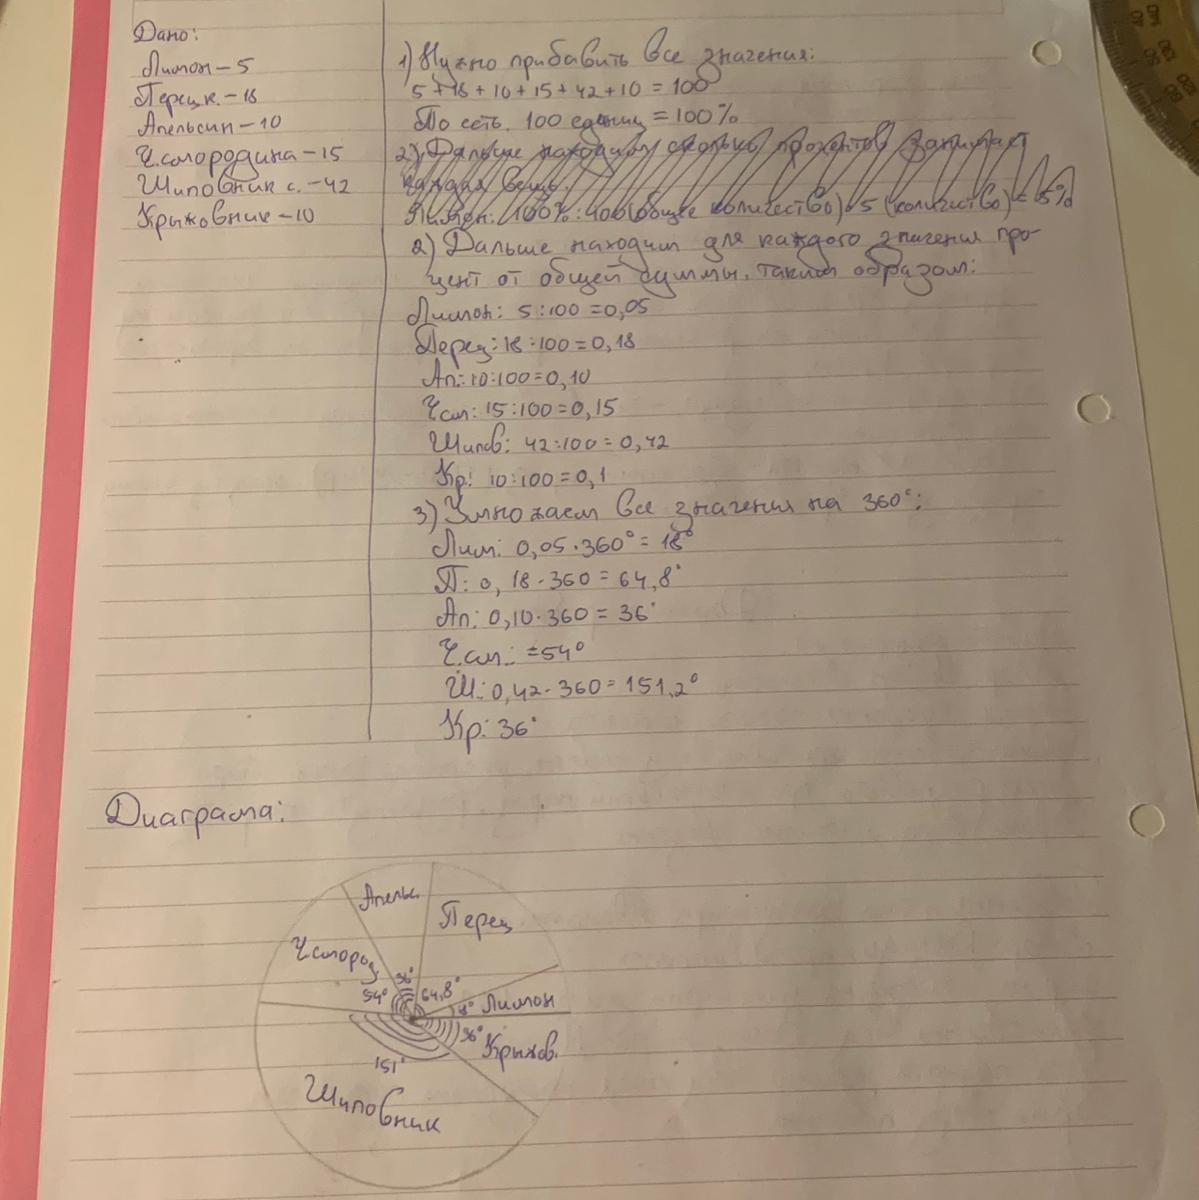 Дано:
Лимон – 5
Перец к. – 18
Апельсин – 10
Ч.смородина – 15
Шиповник с. – 42
Крыжовник – 10
1) Нужно прибавить все значения:
5 + 18 + 10 + 15 + 42 + 10 = 100
То есть. 100 единиц = 100%
2) Дальше находим сколько процентов занимает
каждая вещь.
Лимон: 100% : 100 (общее количество) · 5 (количество) = 5%
2) Дальше находим для каждого значения про-
цент от общей суммы, таким образом:
Лимон: 5 : 100 = 0,05
Перец: 18 : 100 = 0,18
Ап.: 10 : 100 = 0,10
Ч.см: 15 : 100 = 0,15
Шипов: 42 : 100 = 0,42
Кр: 10 : 100 = 0,1
3) Умножаем все значения на 360°:
Лим: 0,05 · 360° = 18°
П: 0,18 · 360 = 64,8°
Ап: 0,10 · 360 = 36°
Ч.см.: = 54°
Ш.: 0,42 · 360 = 151,2°
Кр: 36°
Диаграма:
Апельс.
Перец
Ч.смород
36°
54°
64,8°
18° Лимон
36° Крыжов.
151°
Шиповник